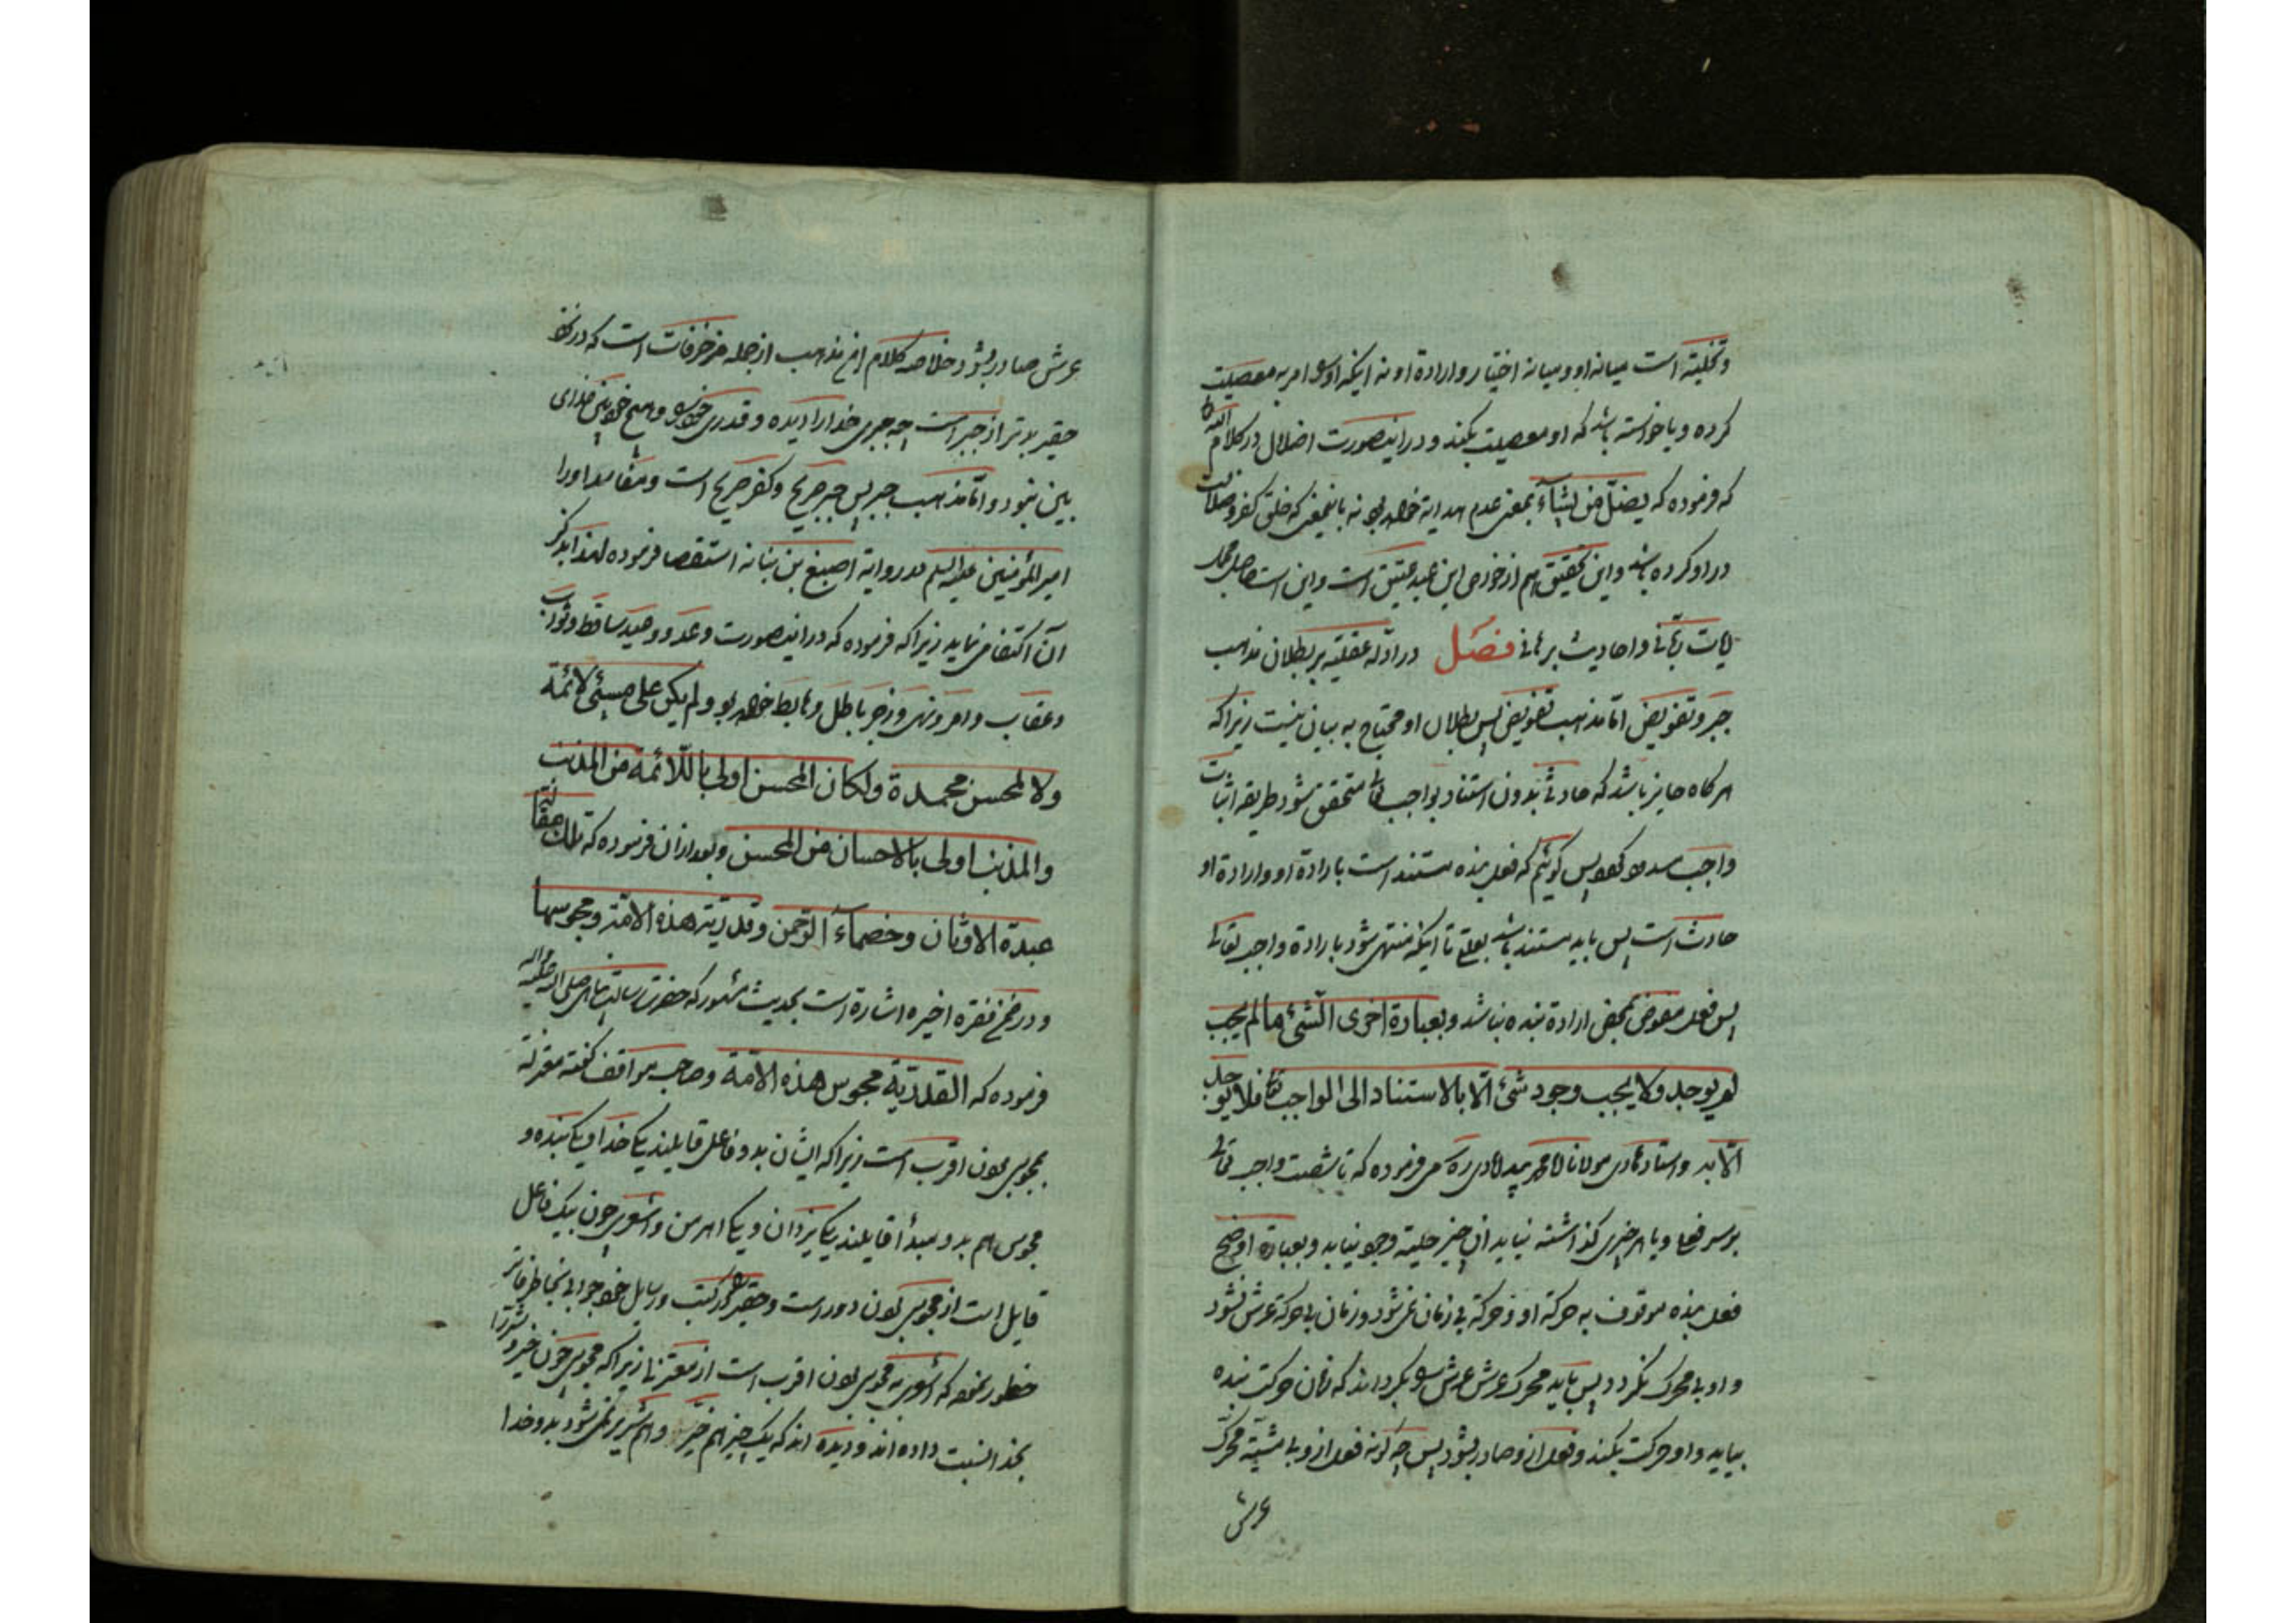 وتخلیته است میانه او ومیانه اختیار واراده او نه اینکه او را امر به معصیت
کرده ویا خواسته باشد که او معصیت بکند ودراینصورت اضلال در کلام الله
که فرموده که یضل من یشآء بمعنی عدم هدایة خواهد بود نه باینمعنی که خلق کفر وضلالت
در او کرده باشد واین تحقیق هم از خواص این عبد عتیق است واین است حاصل محمد
وأحادیث برهانی فصل در ادله عقلیه بر بطلان مذهب
جبر وتفویض اما مذهب تفویض پس بطلان او محتاج به بیان نیست زیرا که
هرکاه جایز باشد که حادثی بدون استناد بواجب تعالی متحقق شود طریقه اثبات
واجب پس کوئیم که فعل بنده مستند است بارادة او وارادة او
حادث است پس باید مستند باشد بعلتی تا اینکه منتهی شود بارادة واجب تعالی
پس فعل مفوض بمحض ارادة بنده نباشد وبعبارة اخری الشئ ما لم یجب
لم یوجد ولا یجب وجود شئ الا بالاستناد الی الواجب تعالی فلا یوجد
الا به واستاد مولانا ره می فرموده که تا مشیت واجب تعالی
برسر فعل ویا هر چیزی کذاشته نیاید ان چیز حلیه وجود نیابد وبعبارة اوضح
فعل بنده موقوف به حرکة او وحرکة بی زمان نمی شود وزمان بی حرکة عرش نشود
واو بی محرک نکردد پس باید محرک عرش عرش را بکرداند که زمان حرکت بنده
بیاید واو حرکت بکند وفعل از وصادر بشود پس چه کونه فعل ازو بی مشیة محرک
عرش
عرش صادر بشود خلاصه کلام این مذهب از جمله مزخرفات است که در نظر
حقیر بدتر از جبر است چه جبری خدا را دیده وقدری خود را وهیچ خودبینی خدای
بین نبود واما مذهب جبر پس جبر صریح وکفر صریح است ومفاسد او را
امیرالمؤمنین علیه السلام در روایة اصبغ بن نباته استقصا فرموده لهذا بذکر
آن اکتفا می نماید زیرا که فرموده که دراینصورت وعد ووعید ساقط وثواب
وعقاب وامر ونهی وزجر باطل وهابط خواهد بود ولم یکن علی مسیئ لائمة
ولا لمحسن محمدة ولکان المحسن اولی باللائمة من المذنب
والمذنب اولی بالاحسان من المحسن وبعد ازان فرموده که تلک مقالة
عبدة الاوثان وخصمآء الرحمن وقدریة هذه الامة ومجوسها
ودر ضمن فقره اخیره اشارة است بحدیث مشهور که حضرت رسالت پناهی صلی الله علیه وآله
فرموده که القدریة مجوس هذه الامة وصاحب مواقف کفته معتزله
بمجوسی بودن اقرب است زیرا که ایشان بدو فاعل قایلند یکی خدا ویکی بنده و
مجوس هم بدو مبدأ قایلند یکی یزدان ویکی اهرمن واشعری چون بیک فاعل
قایل است از مجوسی بودن دور است وحقیر را در کتب ورسایل خود جوابی بخاطر فاتر
خطور نموده که اشعری به مجوسی بودن اقرب است از معتزلی زیرا که مجوسی چون خیر وشر را
بخدا نسبت داده اند ودیده اند که یک چیز هم خیر وهم شریر نمی شود بدو خدا